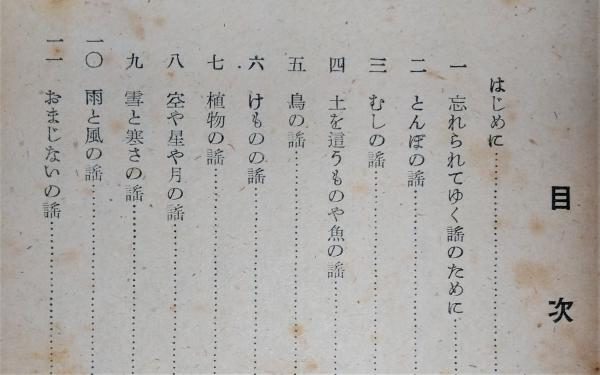 目次
はじめに……………………
一 忘れられてゆく謡のために……
二 とんぼの謡……………………
三 むしの謡……………………
四 土を這うものや魚の謡…………
五 鳥の謡……………………
六 けものの謡……………………
七 植物の謡……………………
八 空や星や月の謡……………………
九 雪と寒さの謡……………………
一〇 雨と風の謡……………………
一一 おまじないの謡……………………